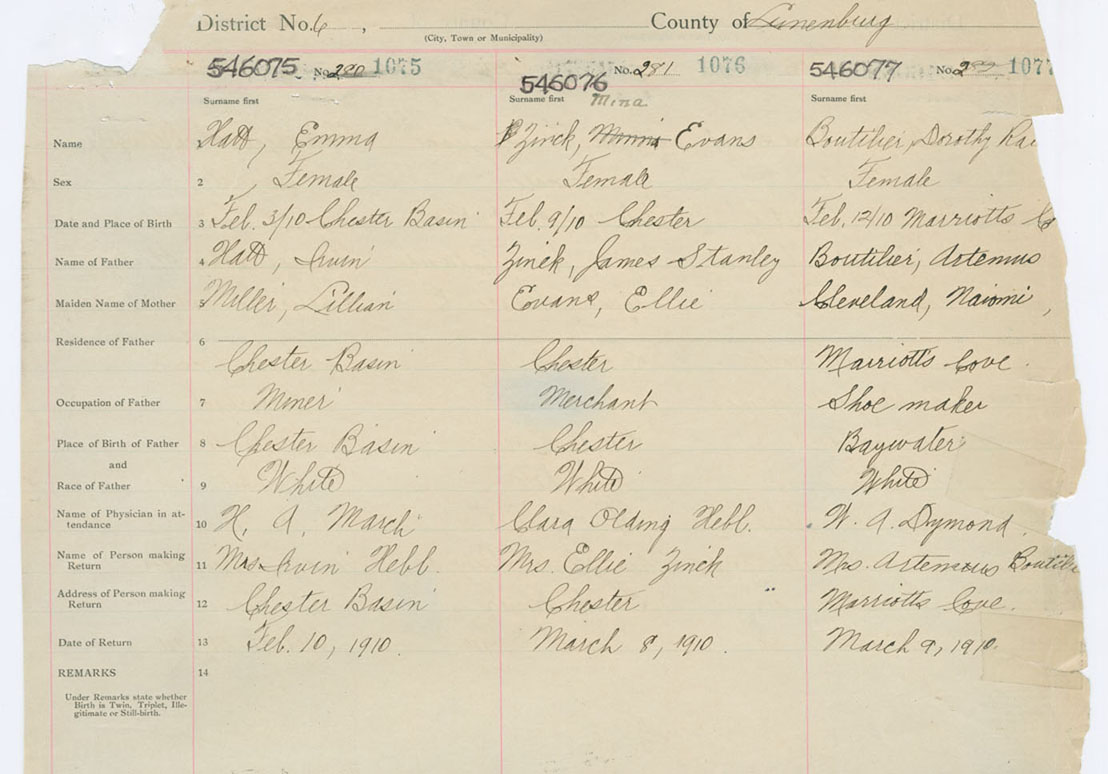 District No. 6 , County of Lunenburg
(City, Town or Municipality)
546075 No. 280 1075 546076 No. 281 1076 546077 No. 1077
Surname first Surname first Mina Surname first
Name 1 Hatt, Emma Zinck, Minni Evans Boutilier, Dorothy
Sex 2 Female Female Female
Date and Place of Birth 3 Feb. 3/10 Chester Basin Feb. 9/10 Chester Feb. 12/10 Marriotts
Name of Father 4 Hatt, Irvin Zinck, James Stanley Boutilier, Artemus
Maiden Name of Mother 5 Miller, Lillian Evans, Ellie Cleveland, Naiomi,
Residence of Father 6
Chester Basin Chester Marriotts Cove.
Occupation of Father 7 Miner Merchant Shoe maker
Place of Birth of Father 8 Chester Basin Chester Baywater
and
Race of Father 9 White White White
Name of Physician in at-
tendance 10 H. A. March Clara Olding Hebb. W. A. Dymond
Name of Person making
Return 11 Mrs Irvin Hebb. Mrs. Ellie Zinck Mrs. Artemeus
Address of Person making
Return 12 Chester Basin Chester " Marriotts Cove.
Date of Return 13 Feb. 10, 1910. March 8, 1910. March 9, 1910.
REMARKS 14
Under Remarks state whether
Birth is Twin, Triplet, Ille-
gitimate or Still-birth.